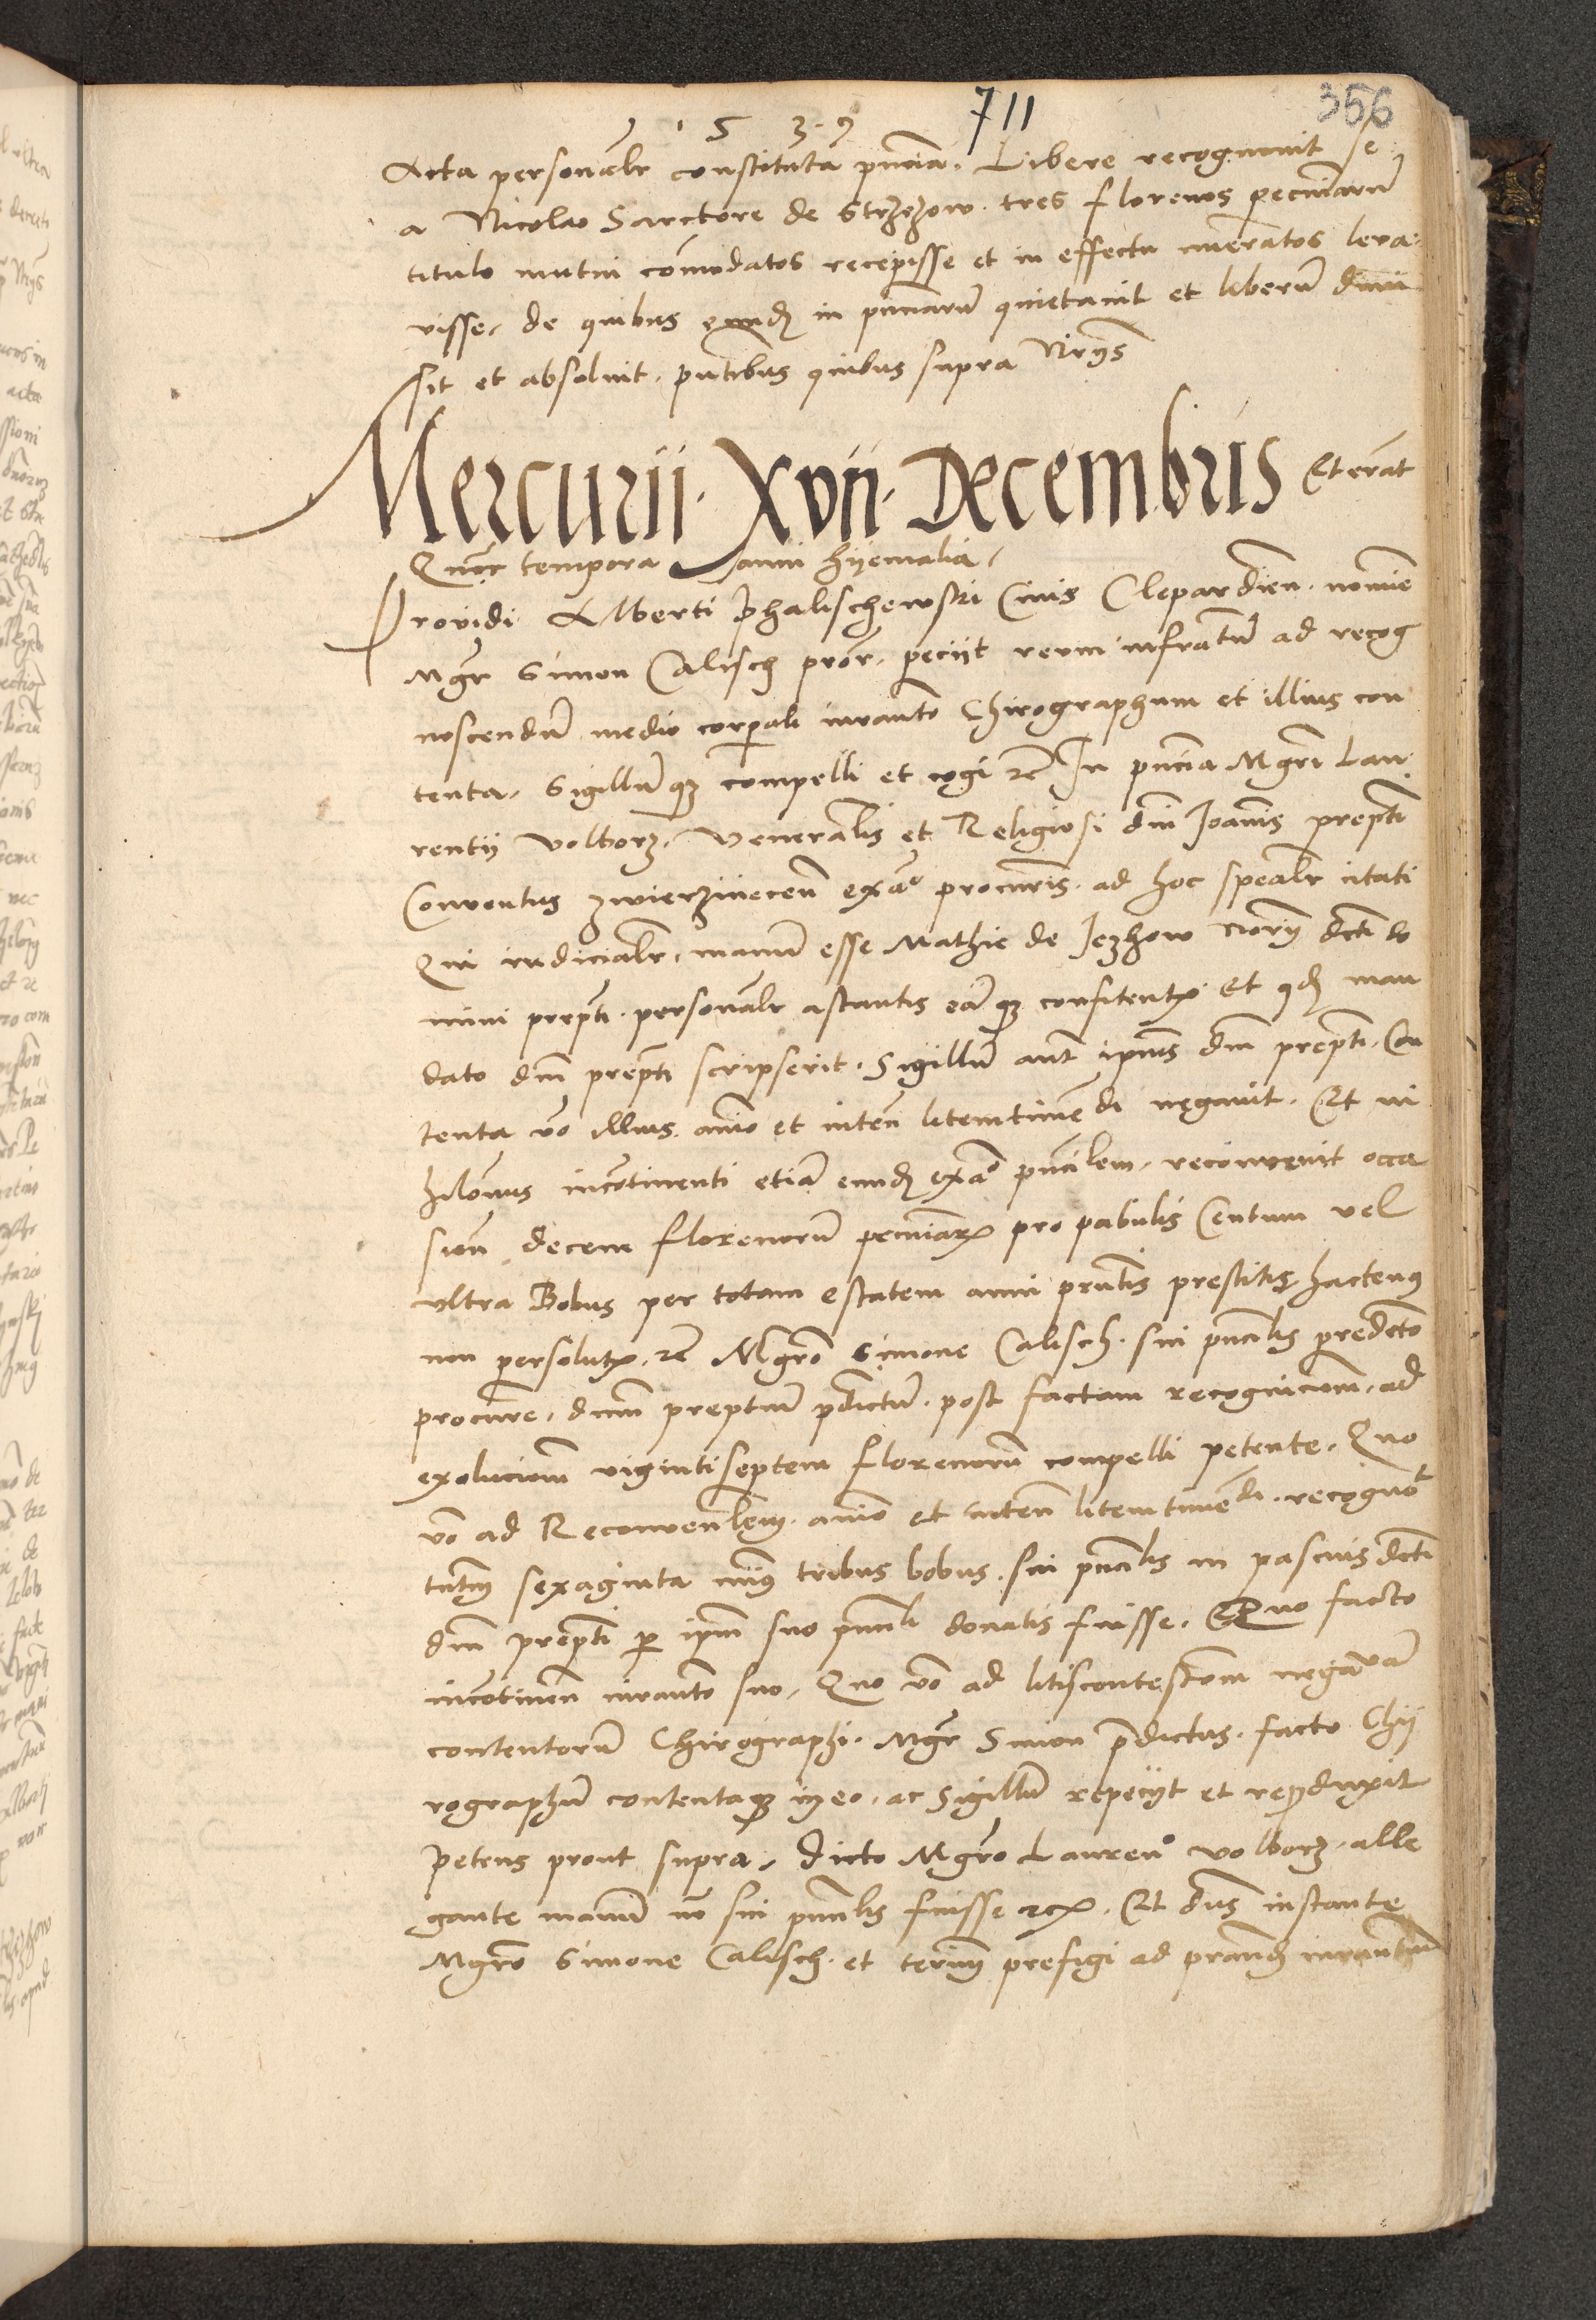 711
356
1 5 3 9
Acta personalr constituta pncia. Libere recognovit se
a Nicolao Sarctore de Strzezow. tres florenos pecuniaru
titulo mutui comodatos recepisse et in effectu nueratos leva
visse. de quibus eund in pnciarum quietavit et liberu dimi
sit et absolvit. pntibus quibus supra Nrys
Mercurii. Xvii. Decembris Et erant
Quor tempora anni hyemalia.
Providi Alberti Phalischewski Civis Clepardien. nomine
Mgr Simon Calisch pror. peciit reum infratum ad recog
noscendu medio corporali iuramto Chirographum et illius con
tenta. Sigillumqz compelli et cogi rc In pncia Mgri Lau
rentii Wolborz. Venerabilis et Religiosi dni Joannis prepti
Conventus zwierzinecen ex ao procuris. ad hoc spealr citati
Qui iudicialr. manu esse Mathie de Jezhow Norii dicti do
mini prepti. personalr astantis eamqz confitentis. et qd man
dato dni prepti scripserit. Sigillum aut ipius dni prepti. Con
tenta vo illius. animo et inten litemtimendi negavit. Et ni
hilominus incotinenti etiam eund ex ao pncilem. reconvenit occa
sion decem florenorum pecuniar pro pabulis Centum vel
ultra Bobus per totam estatem anni pntis prestitis hactenus
non persolut. rc Mgro Simone Calisch. sui pncilis predicto
procure. dnum preptum pdictum. post factam recognicom. ad
exolucionem vigintiseptem florenorum compelli petente. Quo
vo ad Reconvenlem. animo et inten litemtimendi. recognot
tantum sexaginta minus tribus bobus. sui pncilis in pascuis dicti
dni prepti p ipm suo pncili donatis fuisse. Quo facto
incotinen iuramto suo. Quo vo ad litiscontestcom negativam
contentorum Chirographi. Mgr Simon pdictus. facto Chy
rographum contentaqz in eo. ac Sigillum repeciit et reproduxit
Petens prout supra. dicto Mgro Lauren Wolborz. alle
gante manum no sui pncilis fuisse rc. Et dns instante
Mgro Simone Calisch. et terminum prefigi ad prand iuramtum